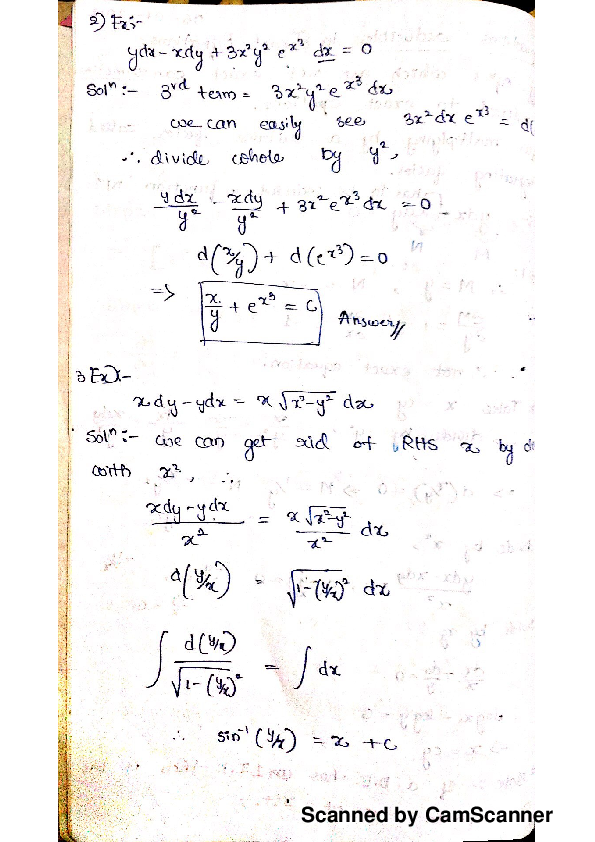 2) Ex:-
ydx - xdy + 3x²y² e^x³ dx = 0
Solⁿ :- 3rd term = 3x²y² e^x³ dx
we can easily see 3x² dx e^x³ = d(
∴ divide whole by y²,
ydx/y² - xdy/y² + 3x² e^x³ dx = 0
d(x/y) + d(e^x³) = 0
=> x/y + e^x³ = C Answer//
3 Ex):-
xdy - ydx = x √(x²-y²) dx
Solⁿ :- we can get rid of RHS x by
with x², ∴
(xdy - ydx)/x² = x√(x²-y²)/x² dx
d(y/x) = √(1-(y/x)²) dx
∫ d(y/x)/√(1-(y/x)²) = ∫ dx
∴ sin⁻¹(y/x) = x + C
Scanned by CamScanner